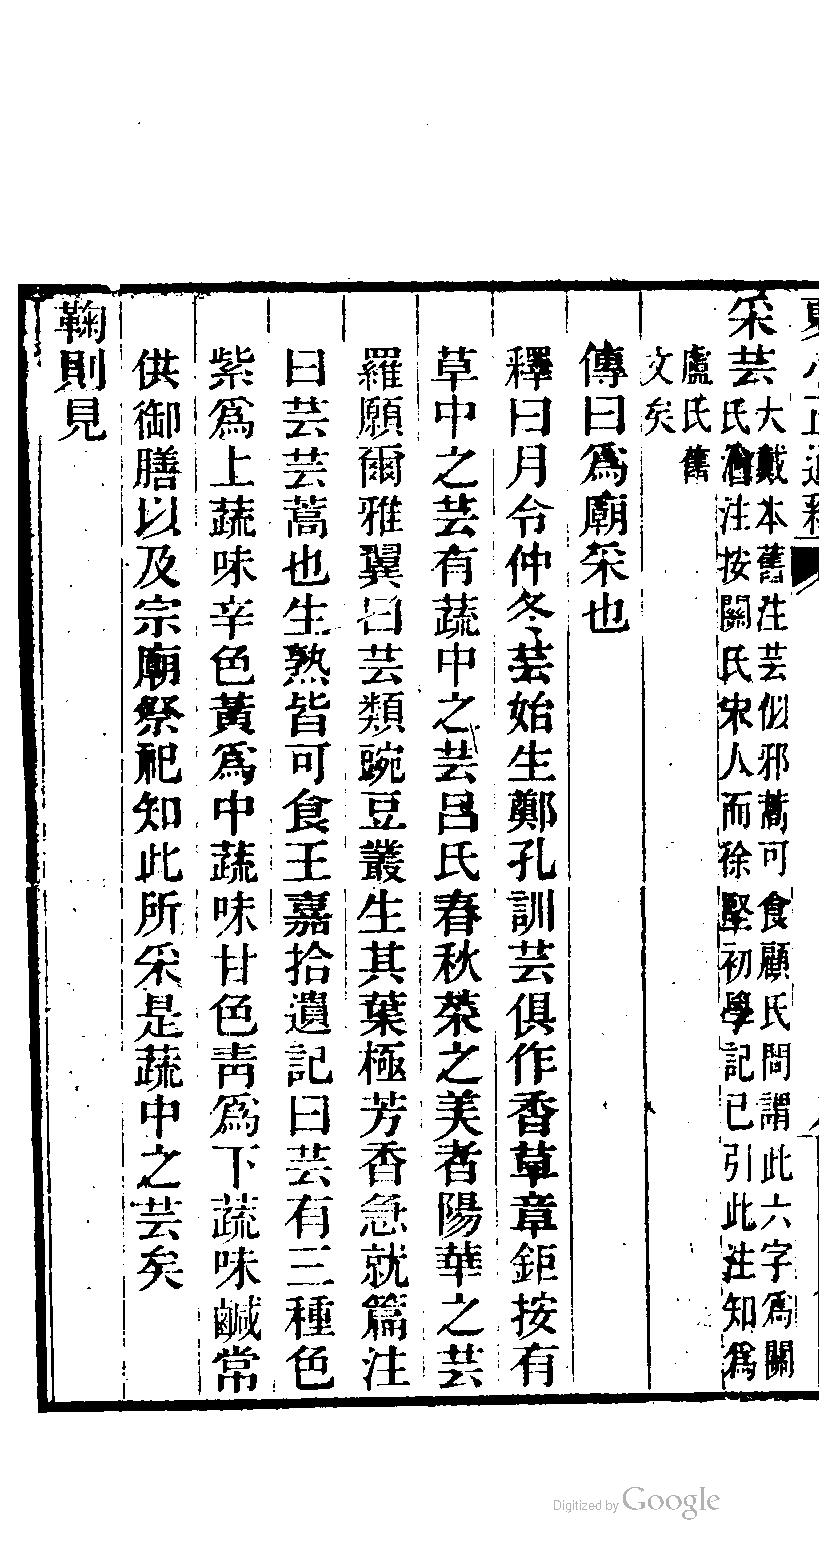 采芸大戴本舊注芸似邪蒿可食顧氏問謂此六字爲關
氏注按關氏宋人而徐堅初學記已引此注知爲
盧氏舊
文矣
傳曰爲廟采也
釋曰月令仲冬芸始生鄭孔訓芸俱作香草章鉅按有
草中之芸有蔬中之芸呂氏春秋菜之美者陽華之芸
羅願爾雅翼曰芸類豌豆叢生其葉極芳香急就篇注
曰芸芸蒿也生熟皆可食王嘉拾遺記曰芸有三種色
紫爲上蔬味辛色黃爲中蔬味甘色靑爲下蔬味鹹常
供御膳以及宗廟祭祀知此所采是蔬中之芸矣
鞠則見
Digitized by Google